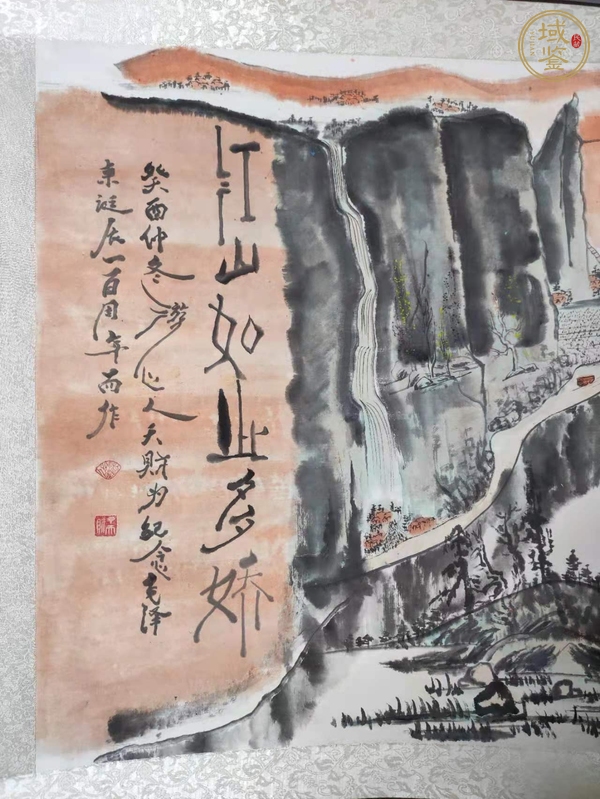 江山如此多娇
癸酉仲冬潜心人天赋为纪念毛泽
东诞辰一百周年而作
域鉴